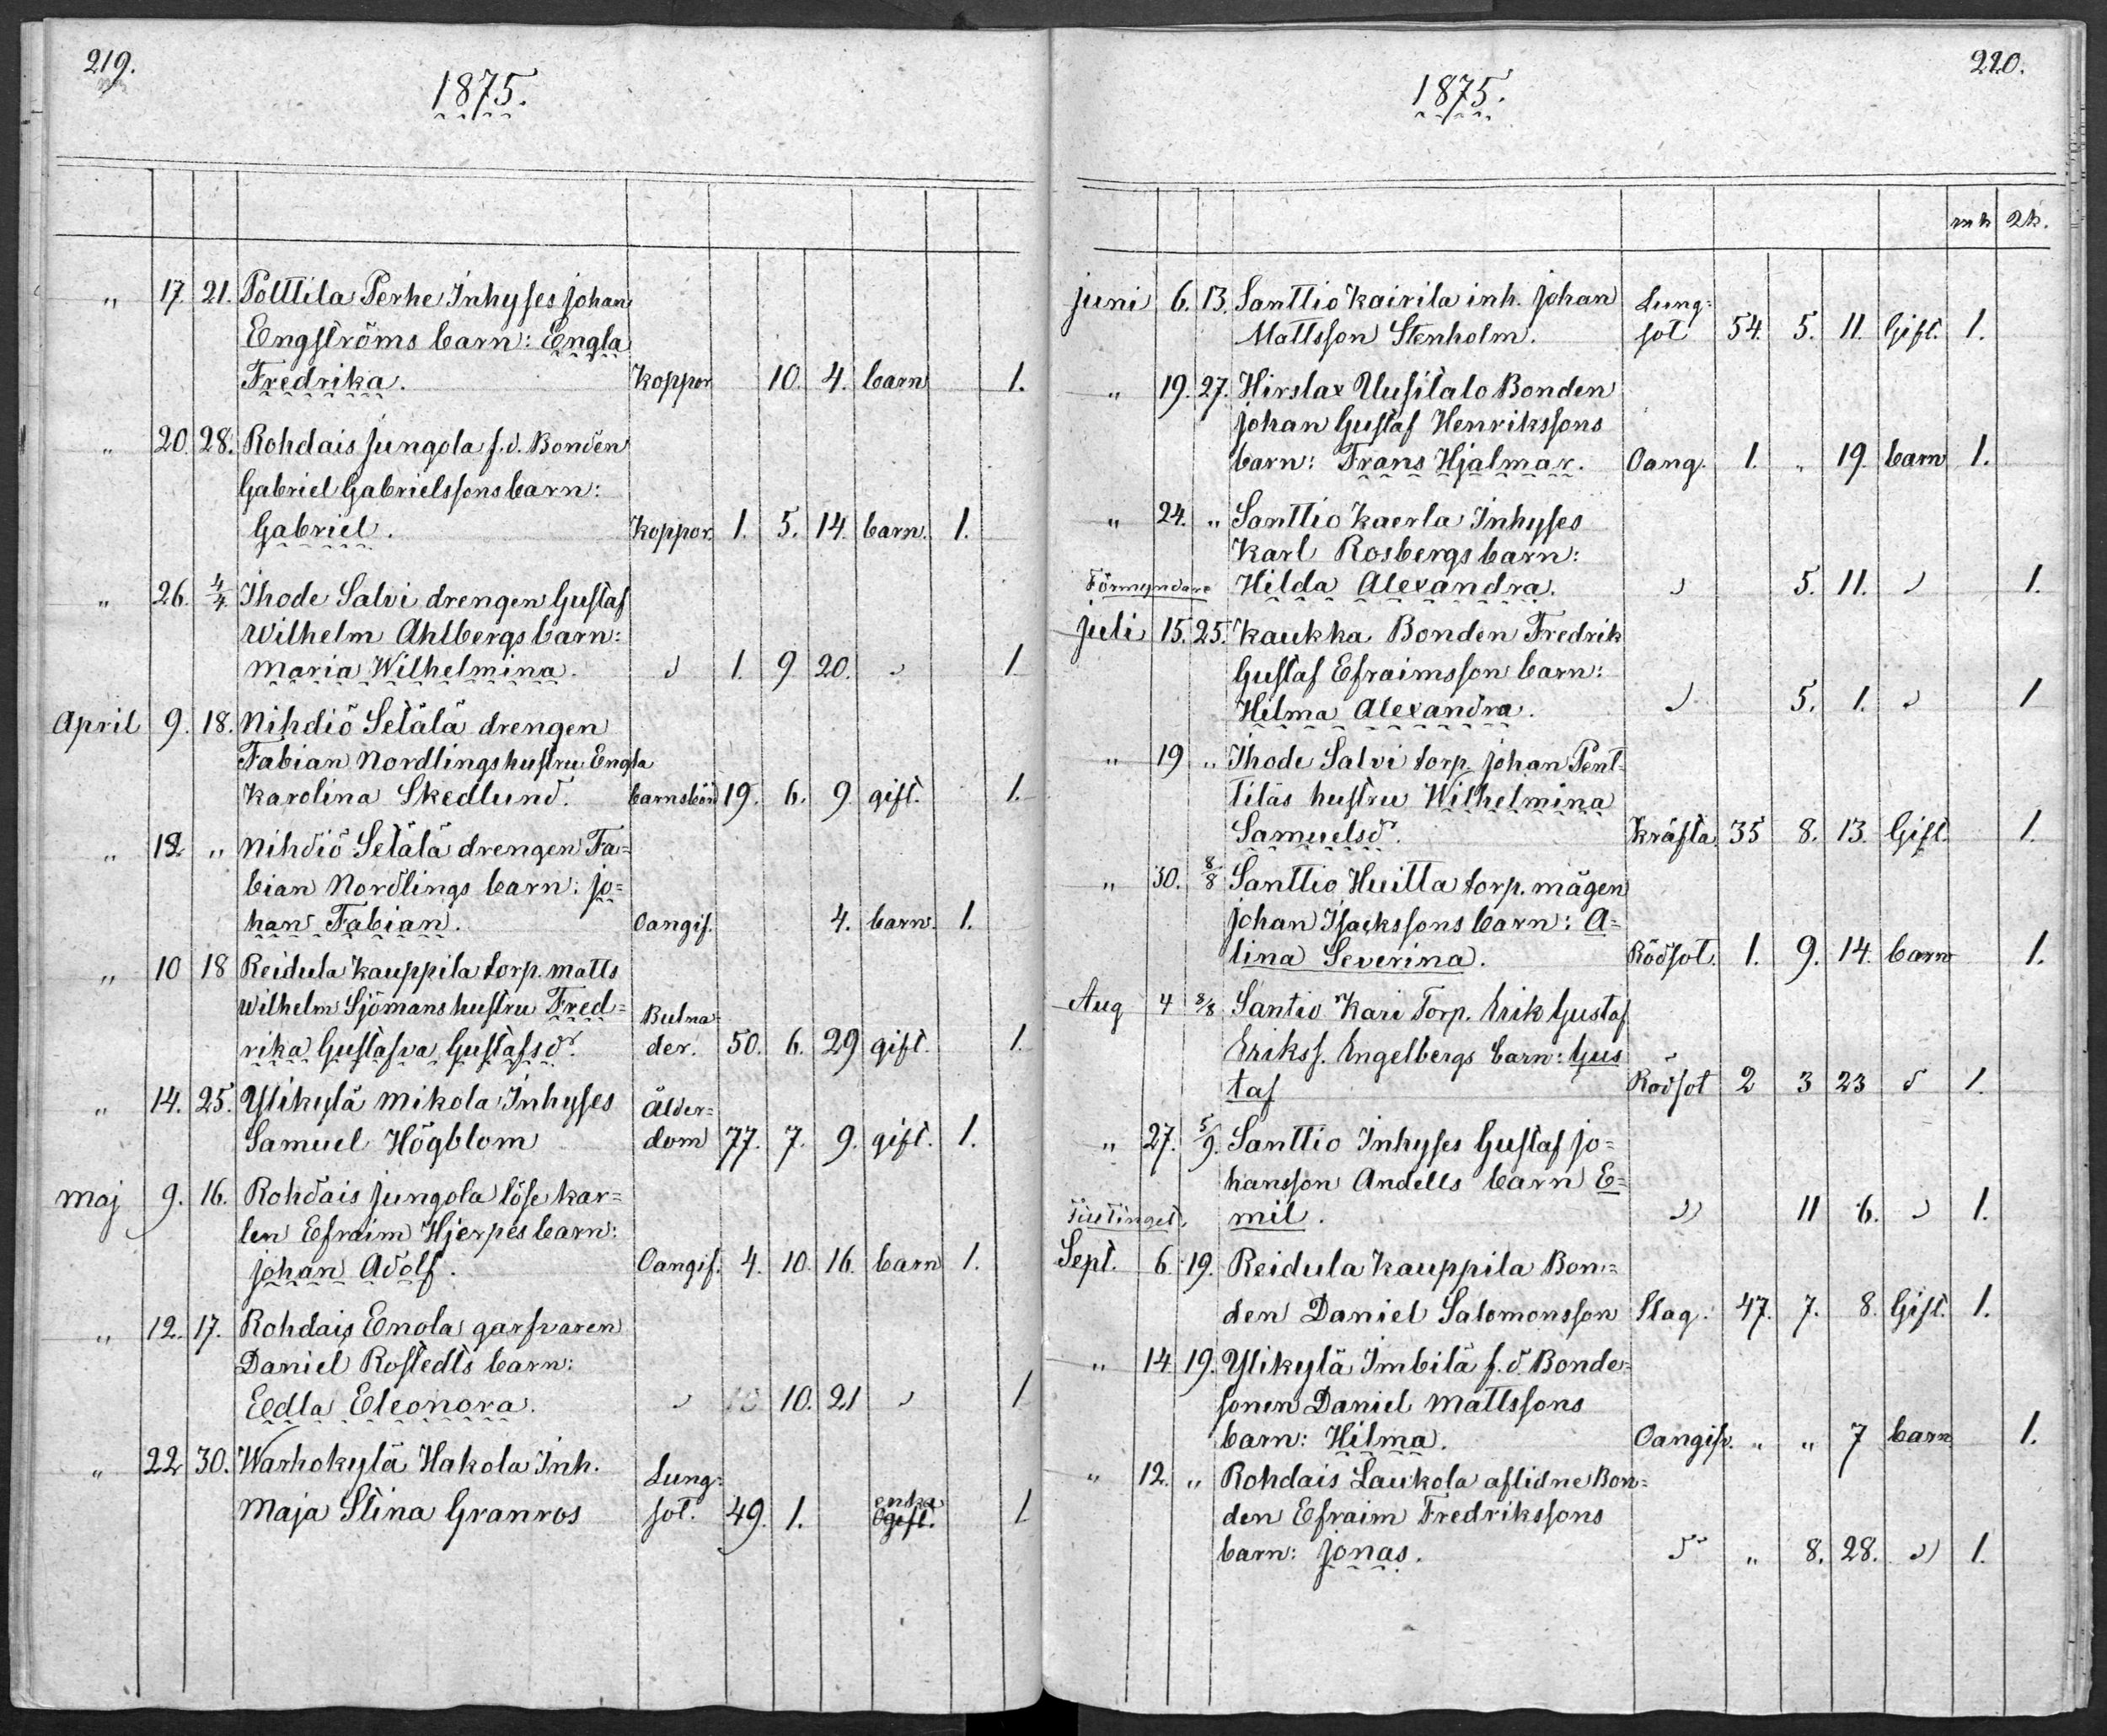 219.
1875.
„ 17 21. Polttila Perhe Inhyses Johan
Engströms barn: Engla
Fredrika. Koppor 10. 4. barn 1.
„ 20. 28. Rohdais Jungola f.d. Bonden
Gabriel Gabrielssons barn:
Gabriel. Koppor. 1. 5. 14. barn. 1.
„ 26. 4/4. Ihode Salvi drengen Gustaf
Wilhelm Ahlbergs barn:
Maria Wilhelmina. „ 1. 9 20. „ 1
April 9. 18. Nihdiö Setälä drengen
Fabian Nordlings hustru Engla
Karolina Skedlund. barnsbörd 19. 6. 9 gift. 1.
„ 12 „ Nihdiö Setälä drengen Fa=
bian Nordlings barn: Jo=
han Fabian. Oangif. 4. barn. 1.
„ 10 18 Reidula Kauppila torp. Matts
Wilhelm Sjömans hustru Fred=
rika Gustafva Gustafsdr. Bulna=
der. 50. 6. 29 gift. 1.
„ 14. 25. Ylikylä Mikola Inhyses
Samuel Högblom Ålder=
dom 77. 7. 9. gift. 1.
Maj 9. 16. Rohdais Jungola löse kar=
len Efraim Hjerpes barn:
Johan Adolf. Oangif. 4. 10. 16. barn 1.
„ 12. 17. Rohdais Enola garfvaren
Daniel Rostedts barn:
Edla Eleonora. „ 10. 21 „ 1
„ 22 30. Warhokylä Hakola Inh.
Maja Stina Granros Lung=
sot. 49. 1. enka
Ogift. 1
220.
1875.
mk 2k.
Juni 6. 13. Santtio Kairila inh. Johan
Mattsson Stenholm. Lung=
sot 54. 5. 11. Gift. 1.
„ 19. 27. Hirslax Uusitalo Bonden
Johan Gustaf Henrikssons
barn: Frans Hjalmar. Oang. 1. „ 19. barn 1.
„ 24. „ Santtio Kaerla Inhyses
Karl Rosbergs barn:
Förmyndare Hilda Alexandra. „ 5. 11. „ 1.
Juli 15. 25. Kaukka Bonden Fredrik
Gustaf Efraimsson barn:
Hilma Alexandra. „ 5. 1. „ 1
„ 19 „ Ihode Salvi torp. Johan Pent=
tiläs hustru Wilhelmina
Samuelsdr. Kräfta 35 8. 13. Gift. 1.
„ 30. 8/8 Santtio Huitta torp. mågen
Johan Isackssons barn: A=
lina Severina. Rödsot. 1. 9. 14. barn 1.
Aug 4 8/8 Santio Kari Torp. Erik Gustaf
Erikss. Engelbergs barn: Gus
taf Rödsot 2 3 23 „ 1.
„ 27. 5/9. Santtio Inhyses Gustaf Jo=
hansson Andells barn E=
mil. „ 11 6. „ 1.
Sept. 6. 19. Reidula Kauppila Bon=
den Daniel Salomonsson Slag. 47. 7. 8. Gift. 1.
„ 14. 19. Ylikylä Imbilä f.d. Bonde=
sonen Daniel Mattssons
barn: Hilma. Oangifv. „ „ 7 barn 1.
„ 12. „ Rohdais Laukola aflidne Bon=
den Efraim Fredrikssons
barn: Jonas. „ „ 8. 28. „ 1.